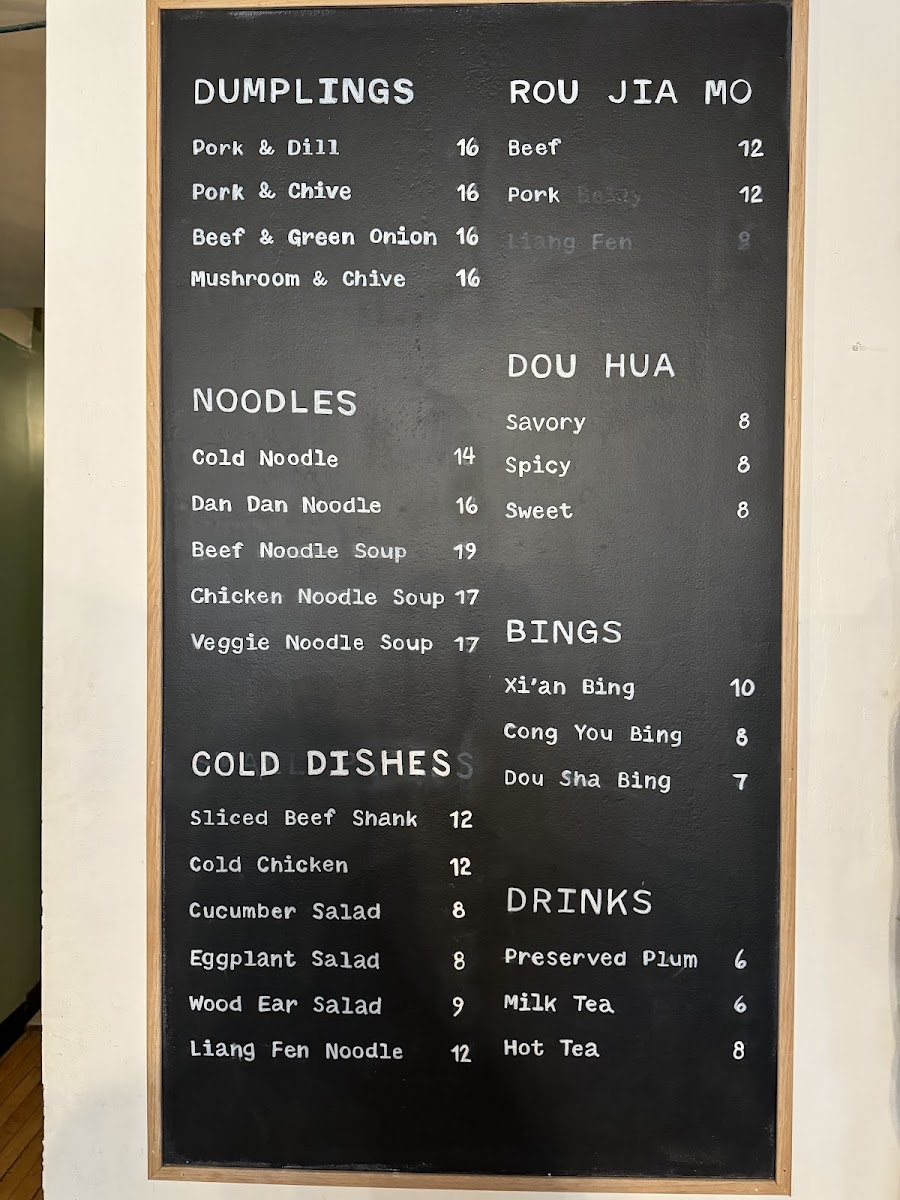 DUMPLINGS
Pork & Dill 16
Pork & Chive 16
Beef & Green Onion 16
Mushroom & Chive 16
NOODLES
Cold Noodle 14
Dan Dan Noodle 16
Beef Noodle Soup 19
Chicken Noodle Soup 17
Veggie Noodle Soup 17
COLD DISHES
Sliced Beef Shank 12
Cold Chicken 12
Cucumber Salad 8
Eggplant Salad 8
Wood Ear Salad 9
Liang Fen Noodle 12
ROU JIA MO
Beef 12
Pork 12
Liang Fen 8
DOU HUA
Savory 8
Spicy 8
Sweet 8
BINGS
Xi'an Bing 10
Cong You Bing 8
Dou Sha Bing 7
DRINKS
Preserved Plum 6
Milk Tea 6
Hot Tea 8